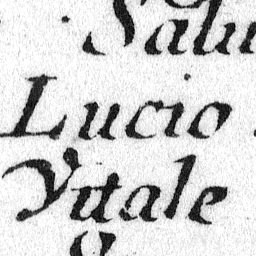 Salu
Lucio
Vitale